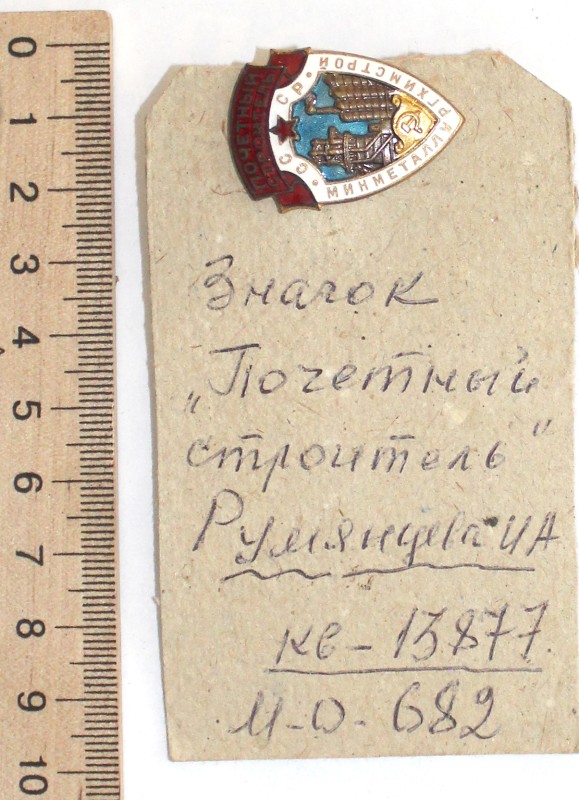 ПОЧЕТНЫЙ
СТРОИТЕЛЬ
СССР
МИНМЕТАЛЛУРГХИМСТРОЙ
Значок
„Почетный
строитель"
Румянцева ИА
кв-13877
М-О-682
0
1
2
3
4
5
6
7
8
9
10